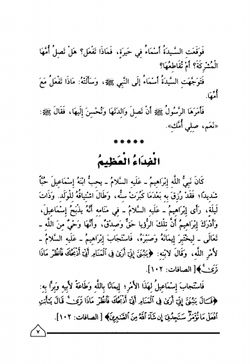 فَوَقَعَتِ السَّيِّدَةُ أَسْمَاءُ فِي حَيْرَةٍ، فَمَاذَا تَفْعَلُ؟ هَلْ تَصِلُ أُمَّهَا
الْمُشْرِكَةَ؟ أَمْ تُقَاطِعُهَا؟
فَتَوَجَّهَتِ السَّيِّدَةُ أَسْمَاءُ إِلَى النَّبِيِّ ﷺ، وَسَأَلَتْهُ: مَاذَا تَفْعَلُ مَعَ
أُمِّهَا.
فَأَمَرَهَا الرَّسُولُ ﷺ أَنْ تَصِلَ وَالِدَتَهَا وَتُحْسِنَ إِلَيْهَا، فَقَالَ ﷺ:
«نَعَمْ، صِلِي أُمَّكِ».
*****
الْفِدَاءُ الْعَظِيمُ
كَانَ نَبِيُّ اللَّهِ إِبْرَاهِيمُ - عَلَيْهِ السَّلَامُ - يُحِبُّ ابْنَهُ إِسْمَاعِيلَ حُبًّا
شَدِيدًا؛ فَقَدْ رُزِقَ بِهِ بَعْدَمَا كَبِرَتْ سِنُّهُ، وَطَالَ اشْتِيَاقُهُ لِلْوَلَدِ. وَذَاتَ
لَيْلَةٍ، رَأَى إِبْرَاهِيمُ - عَلَيْهِ السَّلَامُ - فِي مَنَامِهِ أَنَّهُ يَذْبَحُ إِسْمَاعِيلَ،
وَأَدْرَكَ إِبْرَاهِيمُ أَنَّ تِلْكَ الرُّؤْيَا حَقٌّ وَصِدْقٌ، وَأَنَّهَا وَحْيٌ مِنَ اللَّهِ -
تَعَالَى - لِيَخْتَبِرَ إِيمَانَهُ وَصَبْرَهُ، فَاسْتَجَابَ إِبْرَاهِيمُ - عَلَيْهِ السَّلَامُ -
لِأَمْرِ اللَّهِ، وَقَالَ لِابْنِهِ: ﴿يَٰبُنَيَّ إِنِّيٓ أَرَىٰ فِي ٱلْمَنَامِ أَنِّيٓ أَذْبَحُكَ فَٱنظُرْ مَاذَا
تَرَىٰ﴾ [الصافات: ١٠٢].
فَاسْتَجَابَ إِسْمَاعِيلُ لِهَذَا الْأَمْرِ؛ إِيمَانًا بِاللَّهِ وَطَاعَةً لِأَبِيهِ وَبِرًّا بِهِ:
﴿قَالَ يَٰبُنَيَّ إِنِّيٓ أَرَىٰ فِي ٱلْمَنَامِ أَنِّيٓ أَذْبَحُكَ فَٱنظُرْ مَاذَا تَرَىٰ قَالَ يَٰٓأَبَتِ
ٱفْعَلْ مَا تُؤْمَرُ سَتَجِدُنِيٓ إِن شَآءَ ٱللَّهُ مِنَ ٱلصَّٰبِرِينَ﴾ [الصافات: ١٠٢].